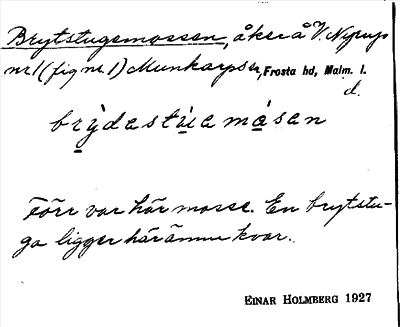 Brytstugsmossen, åker å V. Nyrup
nr 1 (fig nr. 1) Munkarps sn, Frosta hd, Malm. l.
d.
brỳdestúemåsen
Förr var här mosse. En brytstu-
ga ligger här ännu kvar.
EINAR HOLMBERG 1927